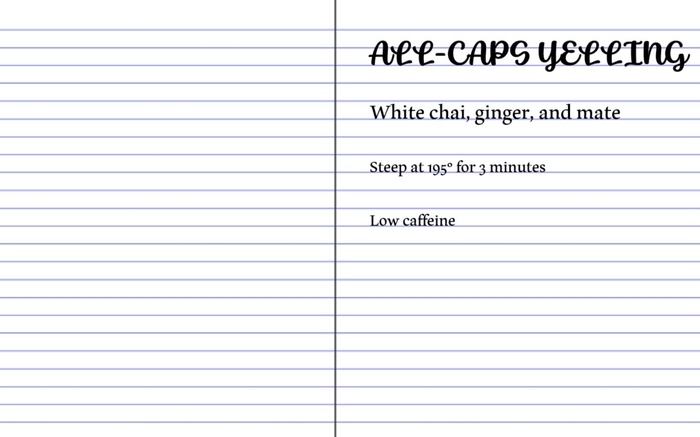 ALL-CAPS YELLING
White chai, ginger, and mate
Steep at 195° for 3 minutes
Low caffeine